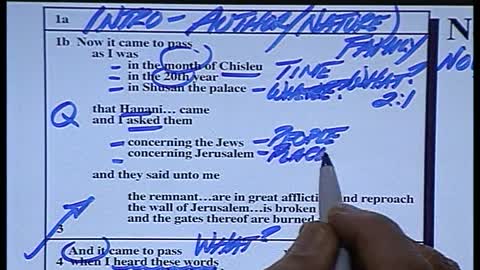 1a INTRO - AUTHOR/NATURE)
N
1b Now it came to pass
FAMILY
as I was
in the month of Chisleu TIME
NO
in the 20th year
WHAT?
in Shusan the palace - WHERE?
2:1
Q that Hanani... came
and I asked them
concerning the Jews - PEOPLE
concerning Jerusalem - PLAC
and they said unto me
the remnant...are in great affliction and reproach
the wall of Jerusalem...is broken
and the gates thereof are burned
3
And it came to pass WHAT?
4 when I heard these words